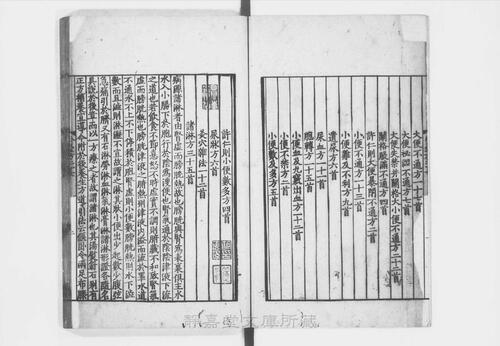 大便不通方一十七首
大便秘澀不通方七首
關格脹滿不通方四首
大便失禁并關格大小便不通方二十二首
許仁則大便暴閉不通方二首
小便不通方一十三首
小便難及不利方九首
遺尿方六首
尿血方一十一首
胞轉方一十五首
小便血及九竅出血方二首
小便不禁方二首
小便數及多方五首
許仁則小便數多方四首
尿牀方六首
灸穴雜法一十二首
諸淋方三十五首
病源諸淋者由腎虛而膀胱熱故也膀胱與腎為表裏俱主水
水入小腸下於胞行於陰為溲便也腎氣通於陰陰津液下流
之道也若飲食不節喜怒不時虛實不調則腑臟不和致腎
虛而膀胱熱也膀胱津液之府熱則津液內溢而流於睪水道
不通水不上不下停積於胞腎虛則小便數膀胱熱則水下澀
數而且澀則淋瀝不宣故謂之淋其狀小便出少起數少腹弦
急痛引於臍又有石淋勞淋血淋氣淋膏淋諸淋形證各隨名
具說於後章而以一方療之者故謂諸淋也其湯熨針石別有
正方補養宣導今附於後養生方導引法云偃臥令兩足布膝
靜嘉堂文庫所藏